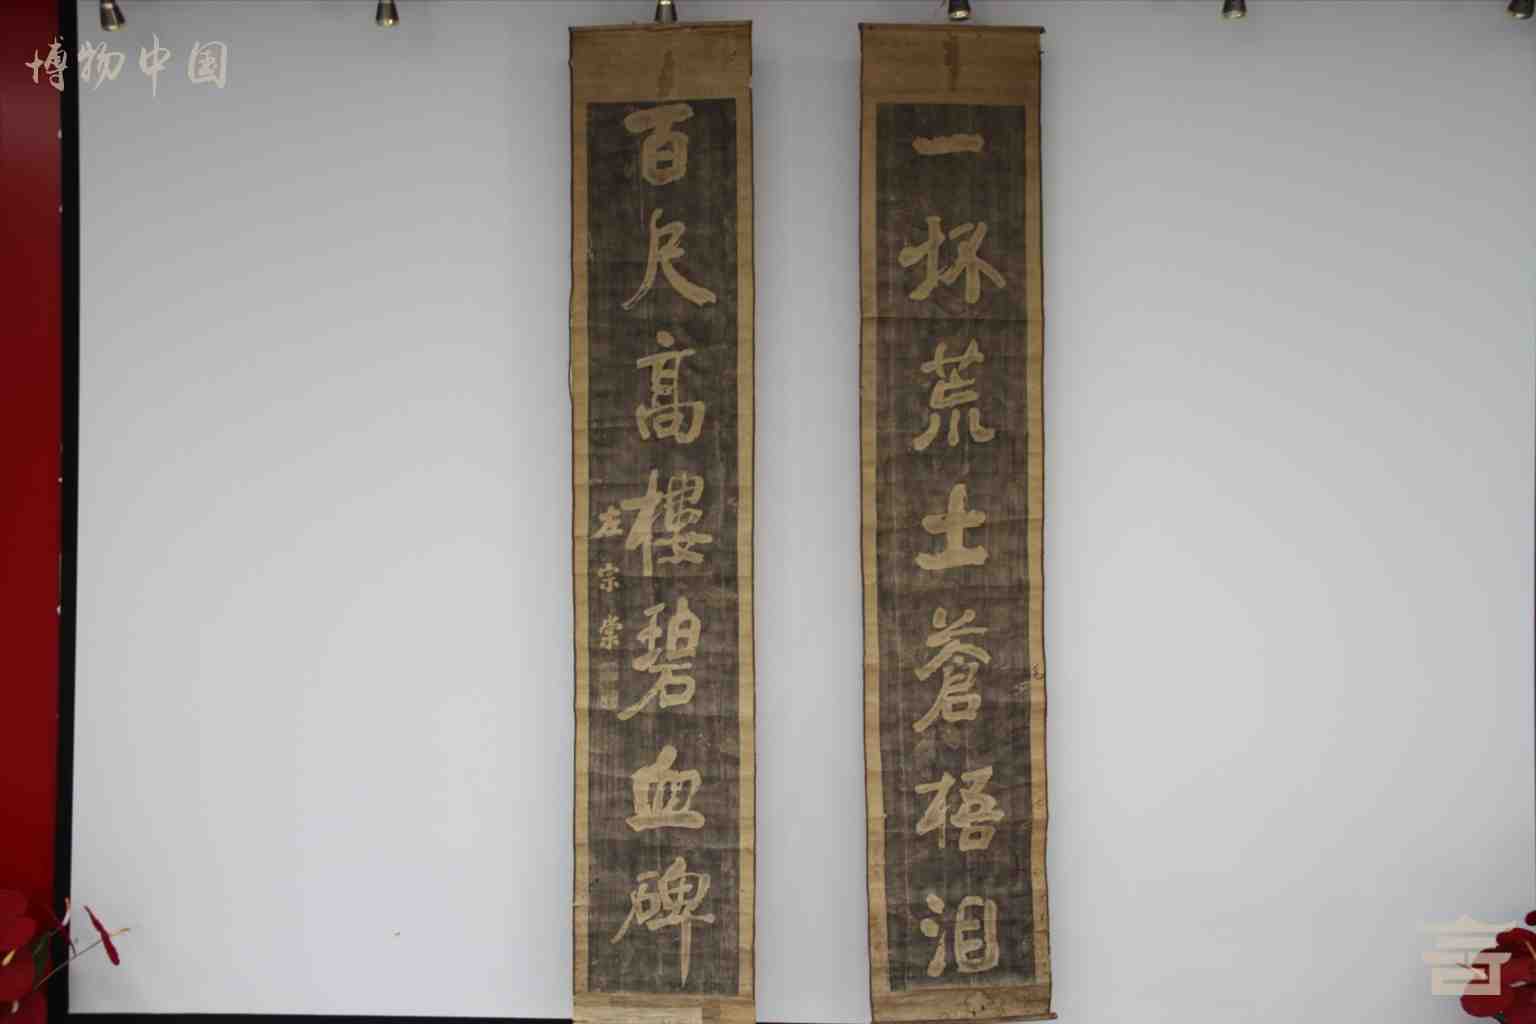 博物中国
一杯荒土蒼梧泪
百尺高樓碧血碑
左宗棠